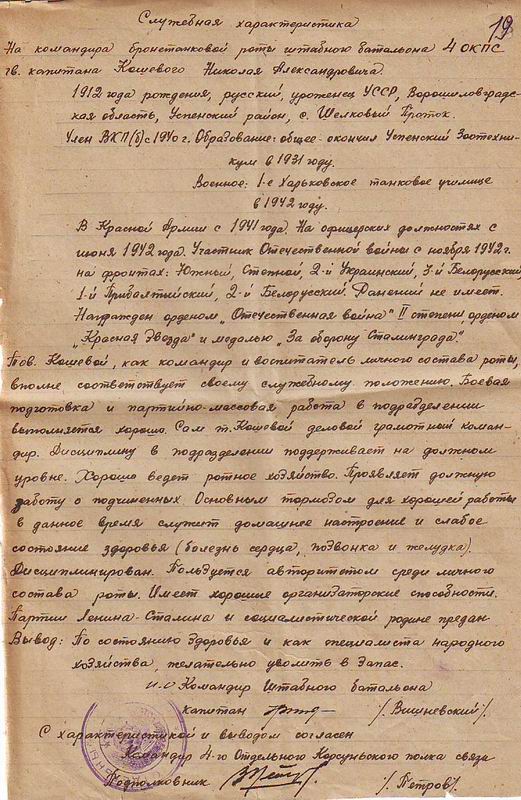 Служебная характеристика
19
На командира бронетанковой роты штабного батальона 4 ОКПС
гв. капитана Кошевого Николая Александровича.
1912 года рождения, русский, уроженец УССР, Ворошиловградс-
кая область, Успенский район, с. Шелковый Проток.
Член ВКП(б) с 1940 г. Образование: общее - окончил Успенский Зоотехни-
кум в 1931 году.
Военное: 1-е Харьковское танковое училище
в 1942 году.
В Красной Армии с 1941 года. На офицерских должностях с
июня 1942 года. Участник Отечественной войны с ноября 1942г.
на фронтах: Южной, Степной, 2-й Украинский, 3-й Белорусский,
1-й Прибалтийский, 2-й Белорусский. Ранений не имеет.
Награжден орденом „Отечественная война" II степени, орденом
„Красная Звезда" и медалью „За оборону Сталинграда".
Тов. Кошевой, как командир и воспитатель личного состава роты,
вполне соответствует своему служебному положению. Боевая
подготовка и партийно-массовая работа в подразделении
выполняется хорошо. Сам т. Кошевой деловой грамотный коман-
дир. Дисциплину в подразделении поддерживает на должном
уровне. Хорошо ведет ротное хозяйство. Проявляет должную
заботу о подчиненных. Основным тормозом для хорошей работы
в данное время служит домашнее настроение и слабое
состояние здоровья (болезнь сердца, позвонка и желудка).
Дисциплинирован. Пользуется авторитетом среди личного
состава роты. Имеет хорошие организаторские способности.
Партии Ленина-Сталина и социалистической родине предан
Вывод: По состоянию здоровья и как специалиста народного
хозяйства, желательно уволить в Запас.
И.О Командир Штабного батальона
капитан /Вишневский/.
С характеристикой и выводом согласен
Командир 4-го Отдельного Корсуньского полка связи
Подполковник /Петров/.